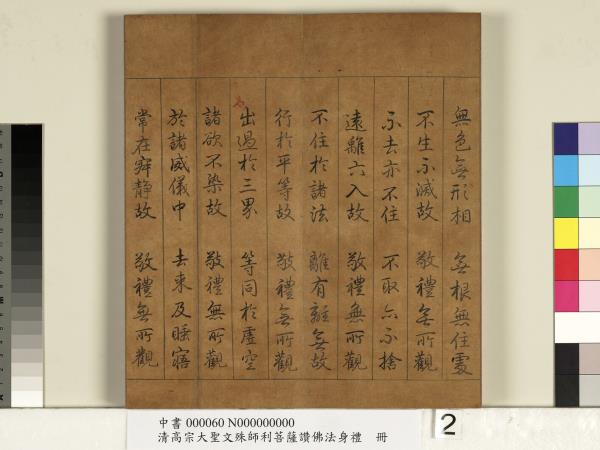 無色無形相 無根無住處
不生不滅故 敬禮無所觀
不去亦不住 不取亦不捨
遠離六入故 敬禮無所觀
不住於諸法 離有離無故
行於平等故 敬禮無所觀
出過於三界 等同於虛空
諸欲不染故 敬禮無所觀
於諸威儀中 去來及睡寤
常在寂靜故 敬禮無所觀
中書 000060 N000000000
清高宗大聖文殊師利菩薩讚佛法身禮 冊
2